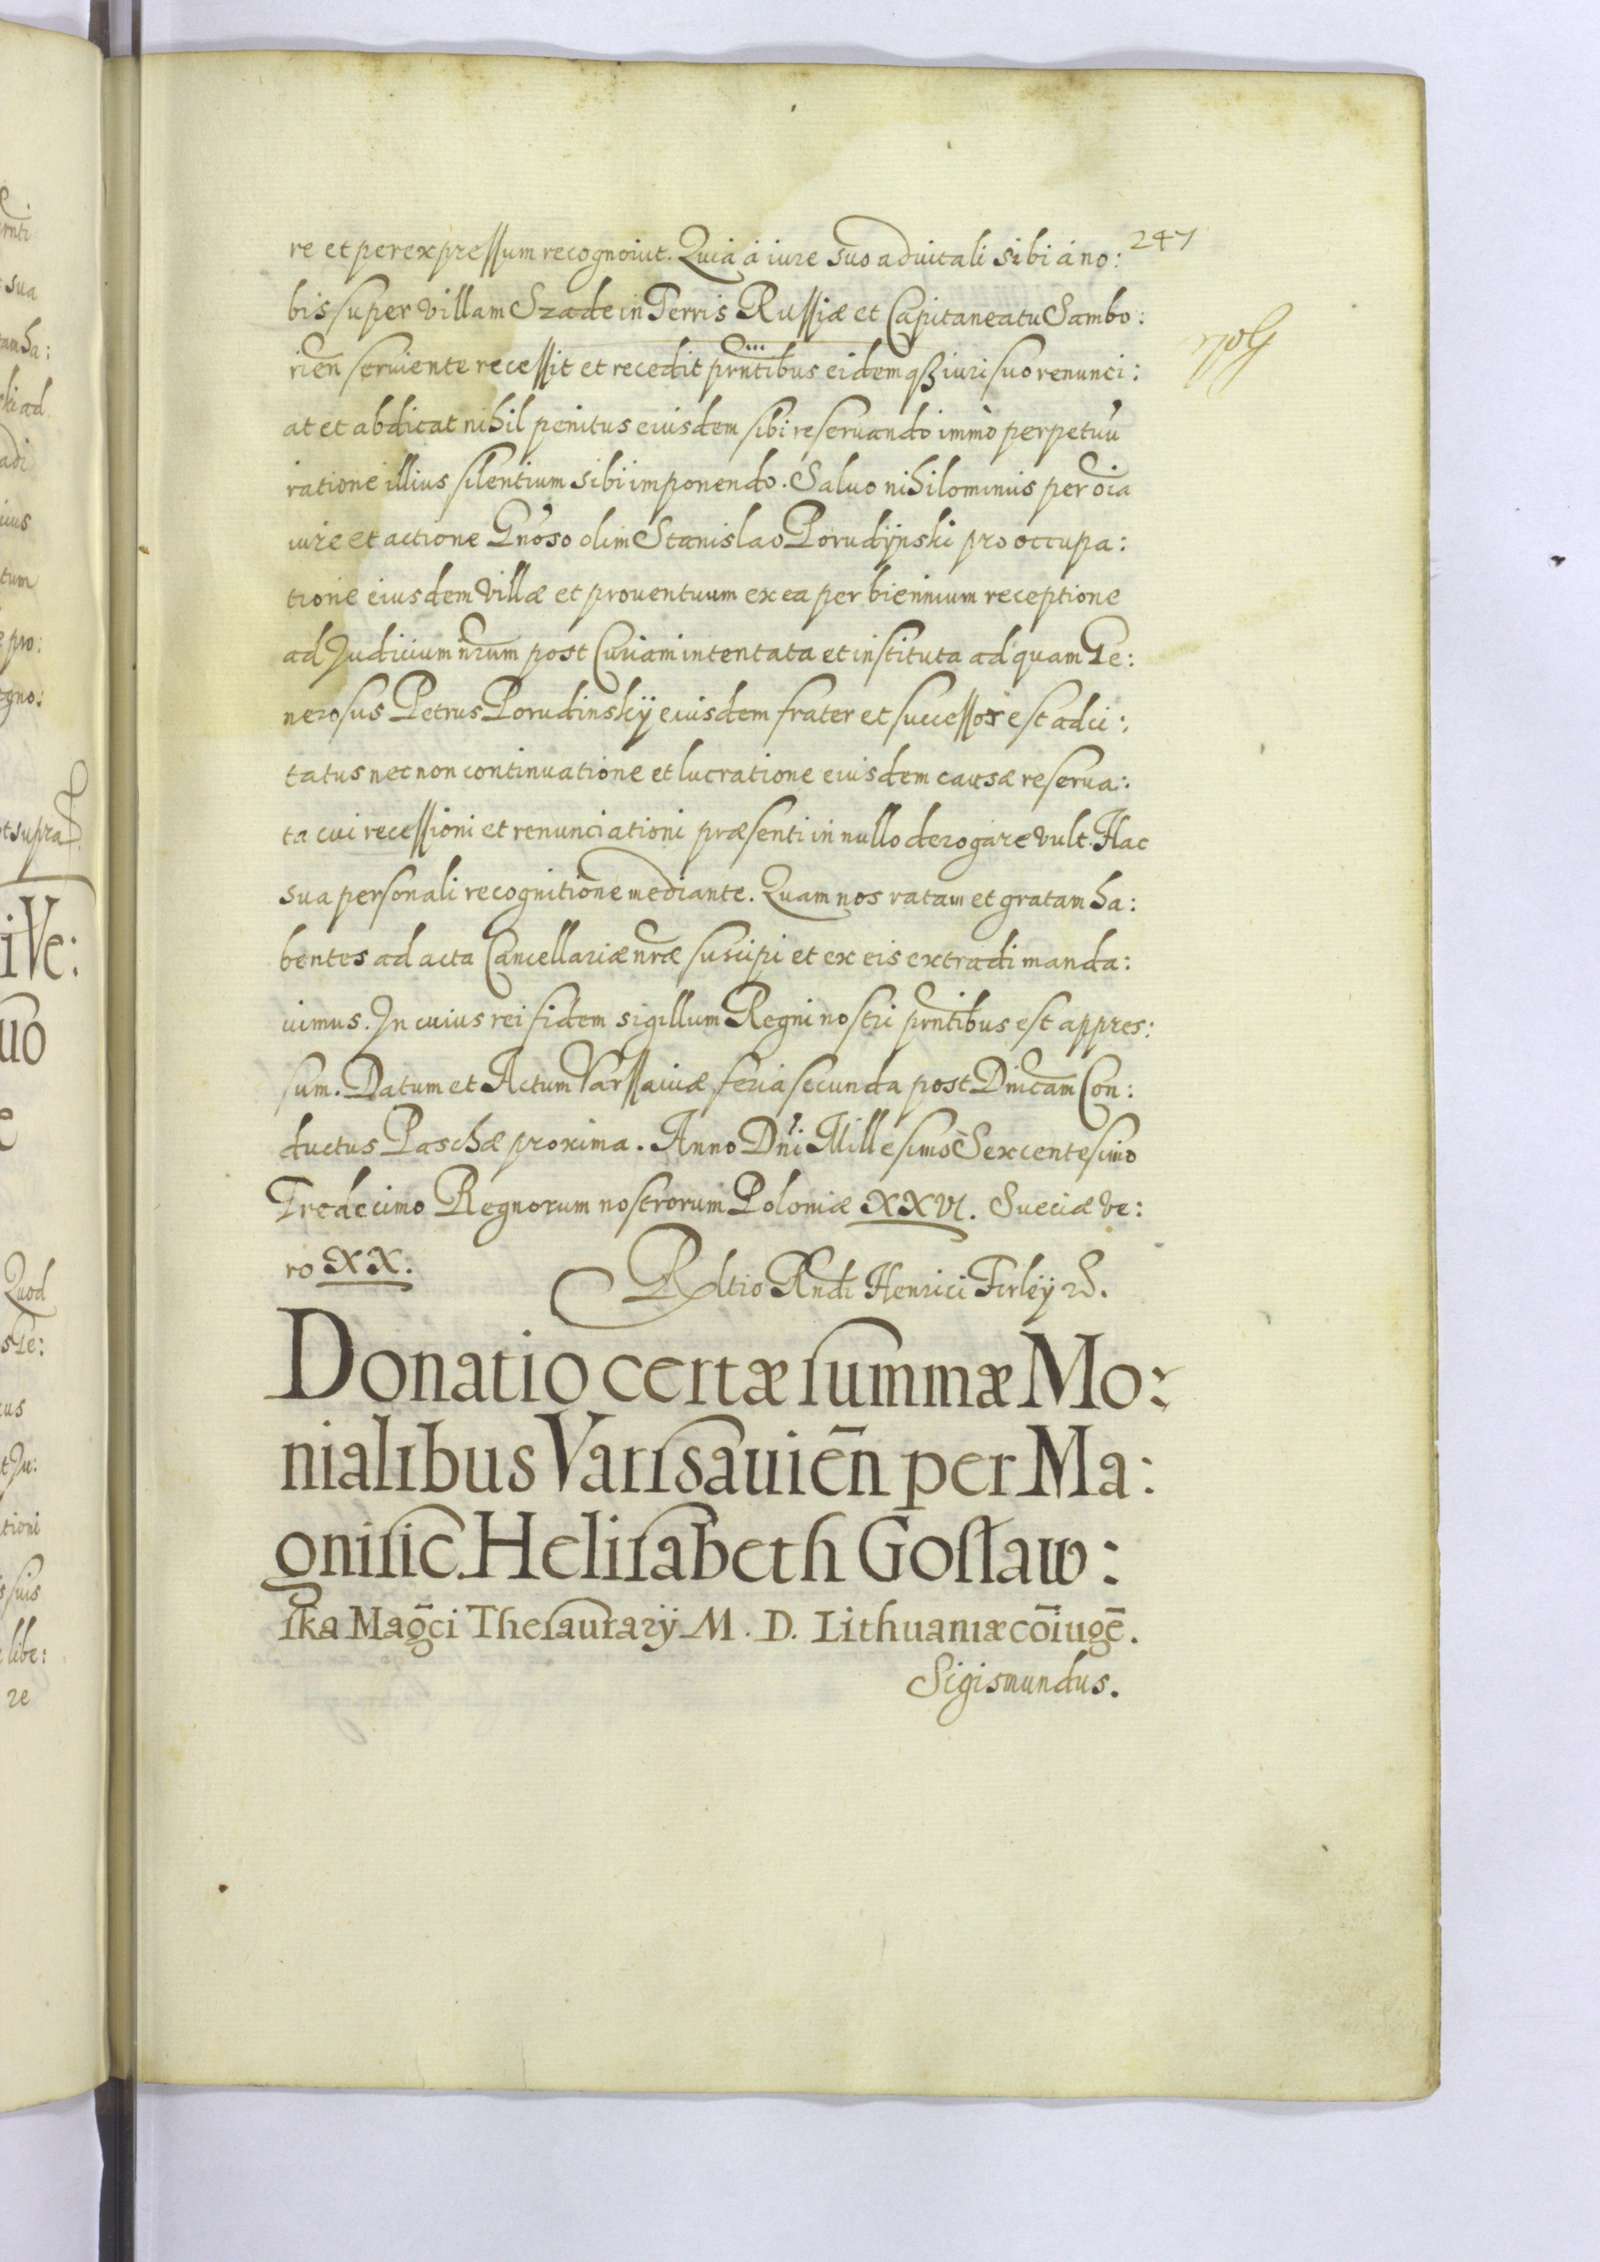 247
re et per expressum recognovit. Quia á iure suo aduitali sibi á no:
bis super villam Szade in Terris Russiæ et Capitaneatu Sambo:
rien̄ seruiente recessit et recedit prn̄tibus eidemqꝫ iuri suo renunci:
at et abdicat nihil penitus eiusdem sibi reseruando immò perpetuū
ratione illius silentium sibi imponendo. Saluo nihilominus per oīa
iure et actione Gn̄oso olim Stanislao Porudÿnski pro occupa:
tione eiusdem villæ et prouentuum ex ea per biennium receptione
ad Judicium nr̄um post Curiam intentata et instituta ad quam Ge:
nerosus Petrus Porudinskÿ eiusdem frater et successor est adci:
tatus nec non continuatione et lucratione eiusdem causæ reserua:
ta cui recessioni et renunciationi præsenti in nullo derogare vult. Hac
sua personali recognitione mediante. Quam nos ratam et gratam ha:
bentes ad acta Cancellariæ nr̄æ suscipi et ex eis extradi manda:
uimus. In cuius rei fidem sigillum Regni nostri prn̄tibus est appres:
sum. Datum et Actum Varssauiæ feria secunda post Dn̄icam Con:
ductus Paschæ proxima. Anno Dn̄i Millesimo Sexcentesimo
Tredecimo Regnorum nostrorum Poloniæ XXVI. Sueciæ ve:
ro XX.
Rltio Rn̄di Henrici Firleÿ
Donatio certæ summæ Mo:
nialibus Varsauien̄ per Ma:
gnific. Helisabeth Goslaw:
ska Mag̃ci Thesaurarÿ M. D. Lithuaniæ cōiugē.
Sigismundus.